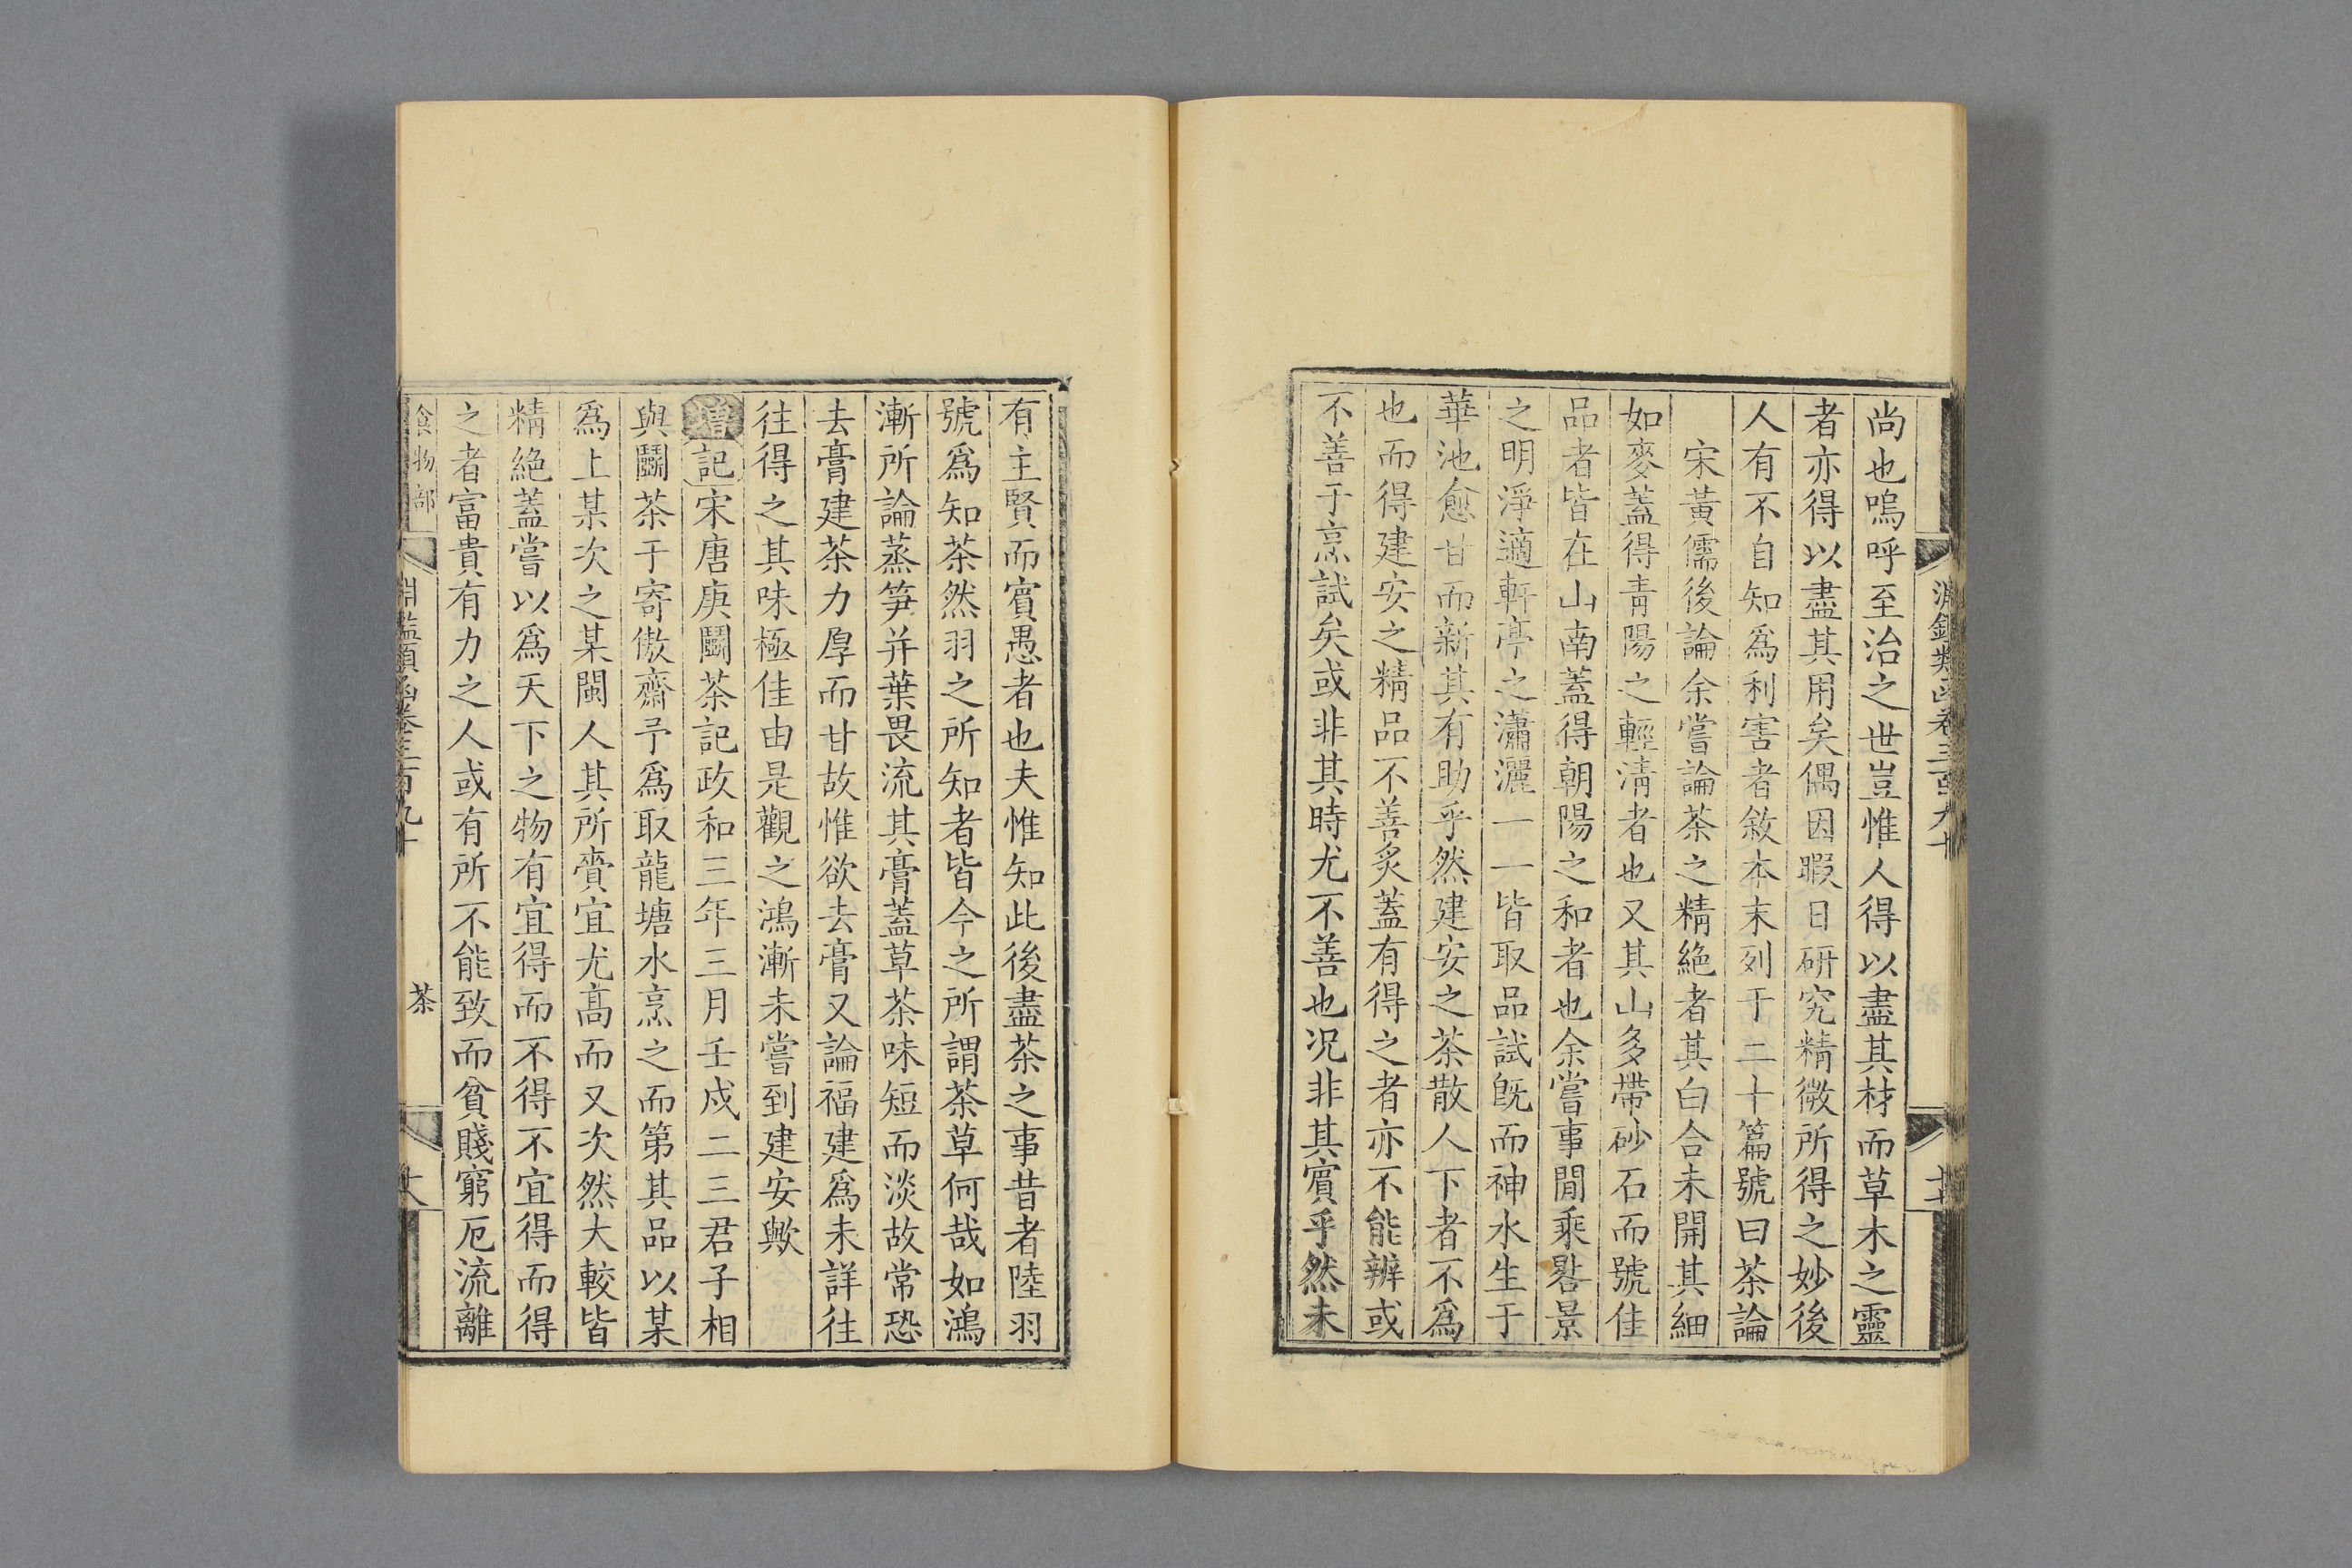 尚也嗚呼至治之世豈惟人得以盡其材而草木之靈
者亦得以盡其用矣偶因暇日研究精微所得之妙後
人有不自知爲利害者敘本末列于二十篇號曰茶論
宋黃儒後論余嘗論茶之精絶者其白合未開其細
如麥蓋得青陽之輕淸者也又其山多帶砂石而號佳
品者皆在山南蓋得朝陽之和者也余嘗事閒乘晷景
之明淨適軒亭之瀟灑一一皆取品試旣而神水生于
華池愈甘而新其有助乎然建安之茶散人下者不爲
也而得建安之精品不善炙蓋有得之者亦不能辨或
不善于烹試矣或非其時尤不善也况非其賓乎然未
有主賢而賓愚者也夫惟知此後盡茶之事昔者陸羽
號爲知茶然羽之所知者皆今之所謂茶草何哉如鴻
漸所論蒸笋并葉畏流其膏蓋草茶味短而淡故常恐
去膏建茶力厚而甘故惟欲去膏又論福建爲未詳往
往得之其味極佳由是觀之鴻漸未嘗到建安歟
增記宋唐庚鬬茶記政和三年三月壬戌二三君子相
與鬬茶于寄傲齋予爲取龍塘水烹之而第其品以某
爲上某次之某閩人其所賫宜尤高而又次然大較皆
精絶蓋嘗以爲天下之物有宜得而不得不宜得而得
之者富貴有力之人或有所不能致而貧賤窮厄流離
食物部
淵鑑類函卷三百九十
茶